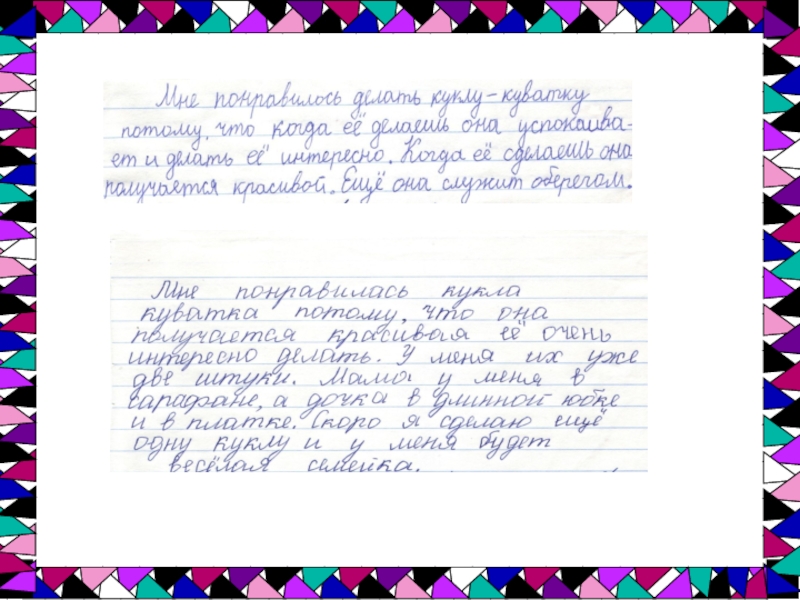 Мне понравилось делать куклу-куватку
потому, что когда её делаешь она успокаива-
ет и делать её интересно. Когда её сделаешь она
получается красивой. Ещё она служит оберегом.
Мне понравилась кукла
куватка потому, что она
получается красивая её очень
интересно делать. У меня их уже
две штуки. Мама у меня в
сарафане, а дочка в длинной юбке
и в платке. Скоро я сделаю ещё
одну куклу и у меня будет
весёлая семейка.